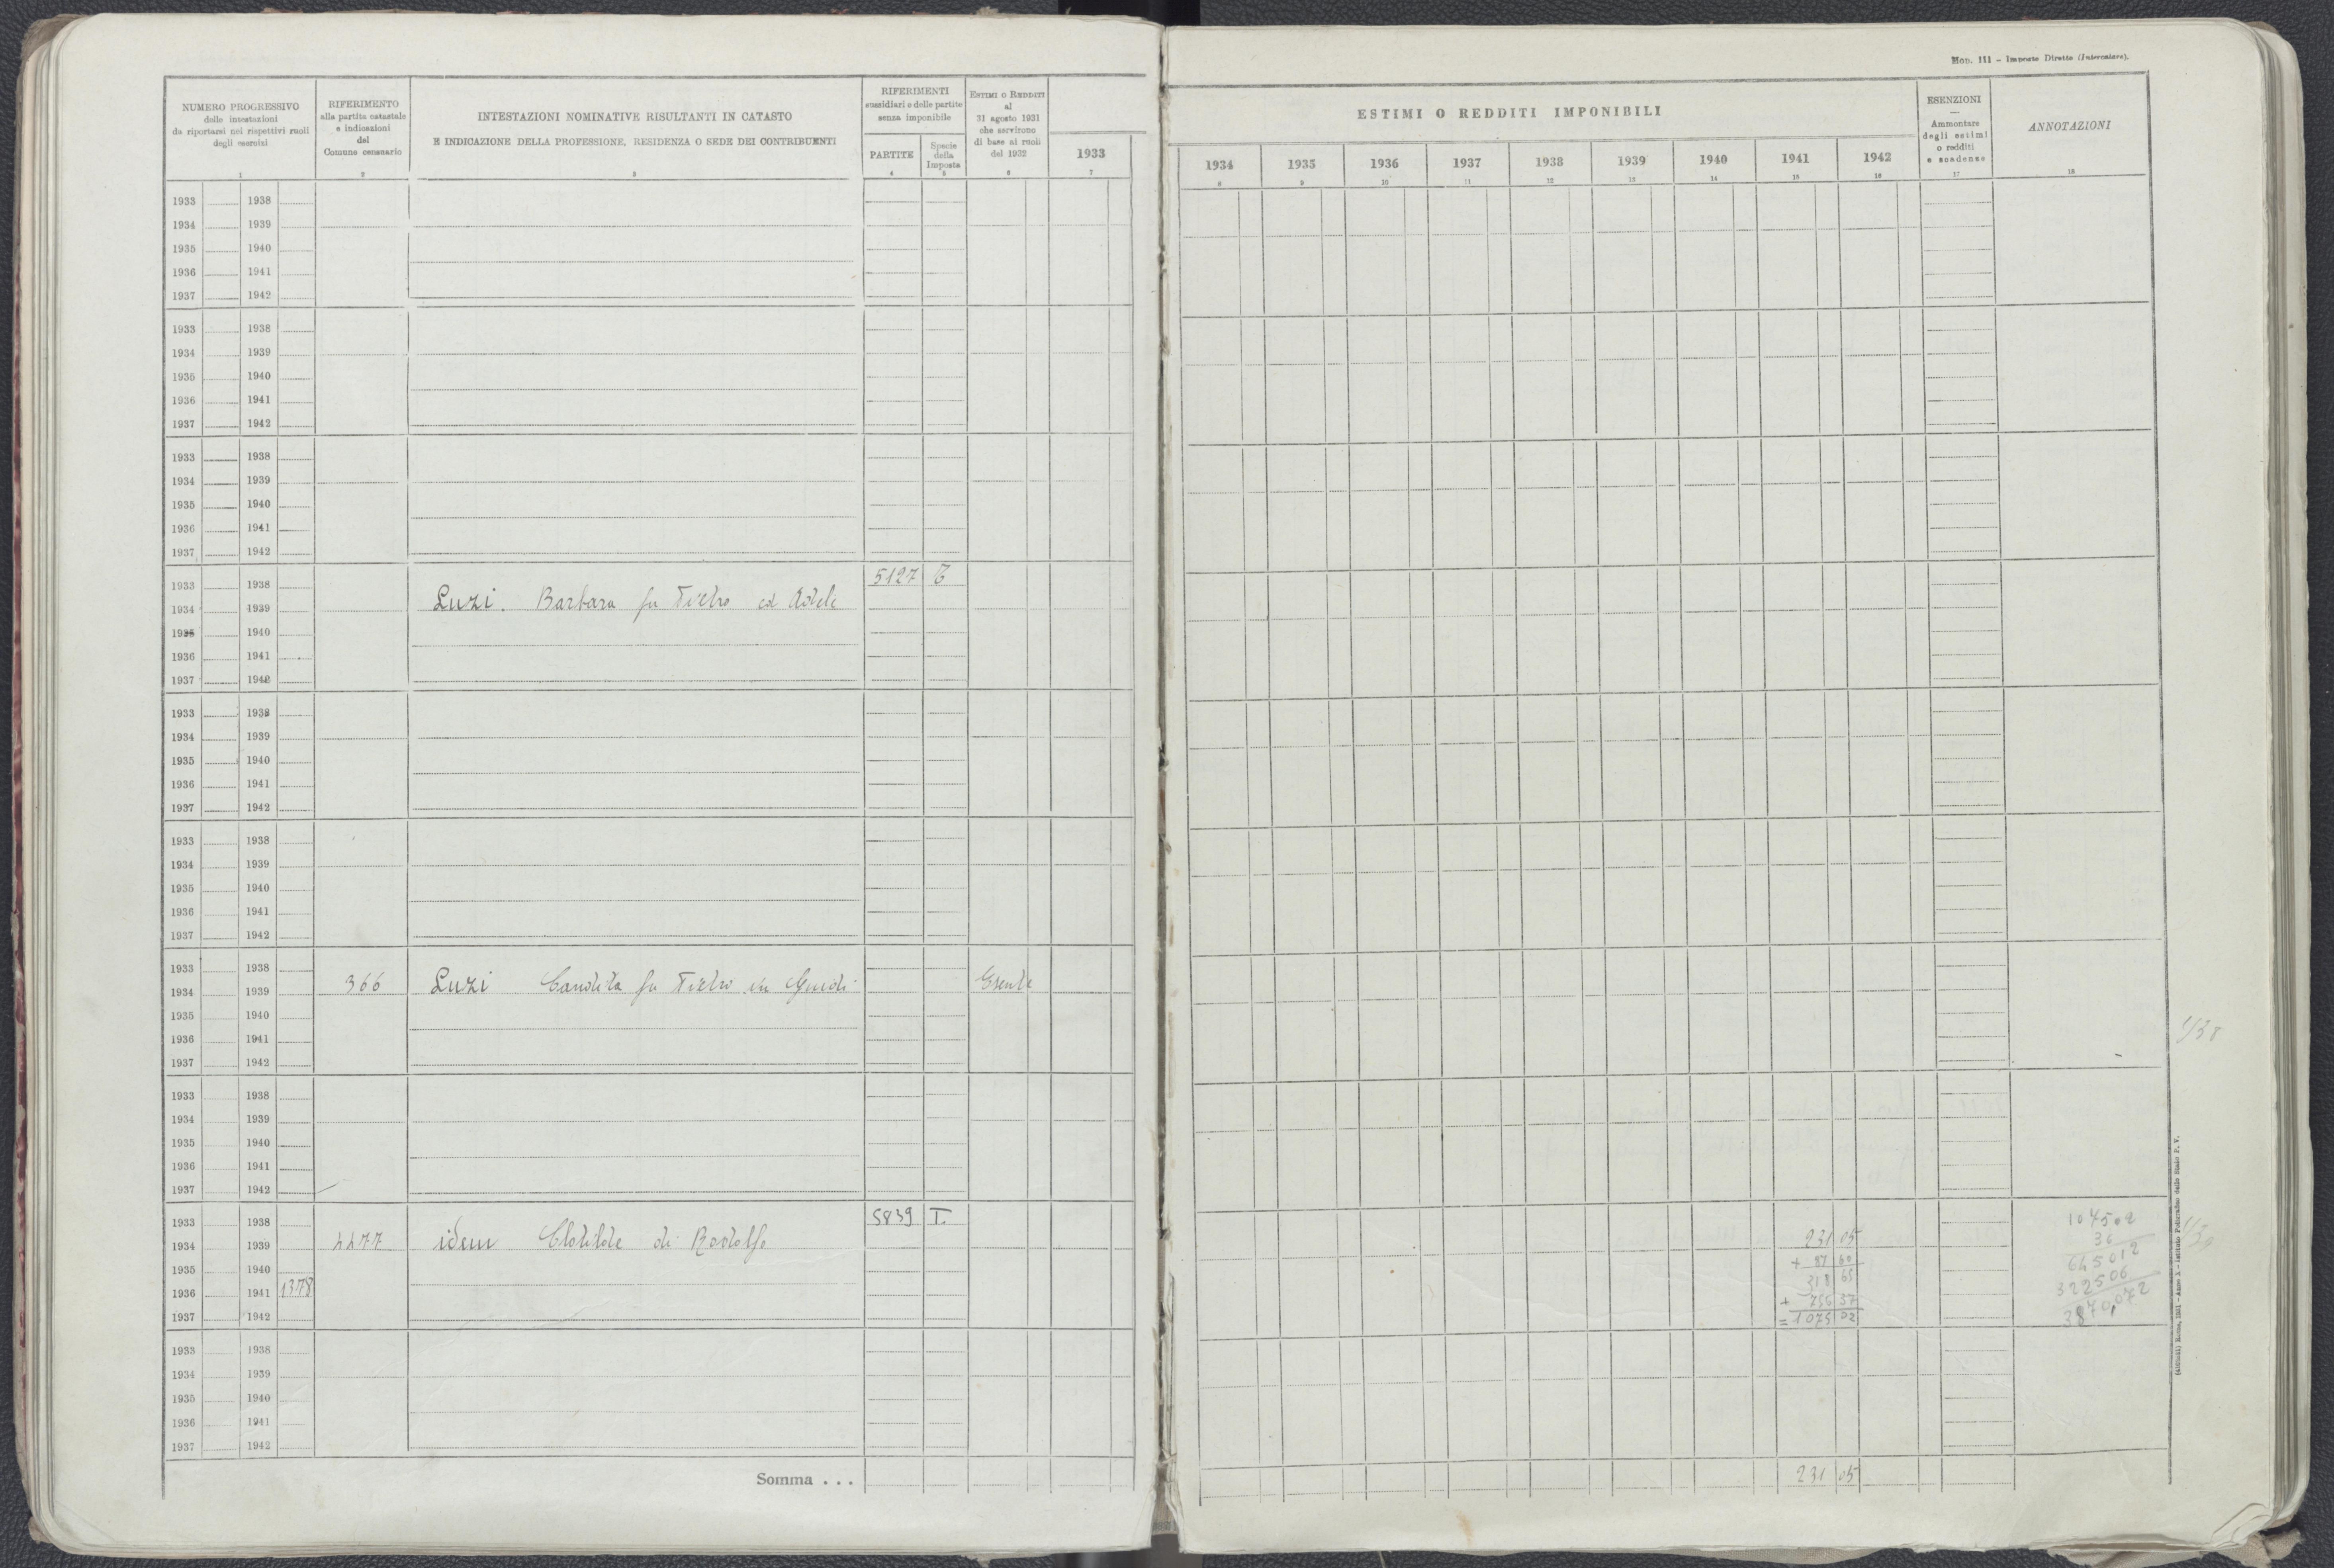 Mod. 111 – Imposte Dirette (Intercalare).
NUMERO PROGRESSIVO
delle intestazioni
da riportarsi nei rispettivi ruoli
degli esercizi
1
RIFERIMENTO
alla partita catastale
e indicazioni
del
Comune censuario
2
INTESTAZIONI NOMINATIVE RISULTANTI IN CATASTO
E INDICAZIONE DELLA PROFESSIONE, RESIDENZA O SEDE DEI CONTRIBUENTI
3
RIFERIMENTI
sussidiari o delle partite
senza imponibile
PARTITE
4
Specie
della
Imposta
5
ESTIMI O REDDITI
al
31 agosto 1931
che servirono
di base ai ruoli
del 1932
6
1933
7
ESTIMI O REDDITI IMPONIBILI
1934 1935 1936 1937 1938 1939 1940 1941 1942
8 9 10 11 12 13 14 15 16
ESENZIONI
—
Ammontare
degli estimi
o redditi
e scadenze
17
ANNOTAZIONI
18
1933 1938
1934 1939
1935 1940
1936 1941
1937 1942
1933 1938
1934 1939
1935 1940
1936 1941
1937 1942
1933 1938
1934 1939
1935 1940
1936 1941
1937 1942
1933 1938 5127 T
1934 1939 Luzi. Barbara fu Pietro ed Adele
1935 1940
1936 1941
1937 1942
1933 1938
1934 1939
1935 1940
1936 1941
1937 1942
1933 1938
1934 1939
1935 1940
1936 1941
1937 1942
1933 1938
1934 1939 366 Luzi Candida fu Pietro in Guidi Esente
1935 1940
1936 1941
1937 1942
1/38
1933 1938
1934 1939
1935 1940
1936 1941
1937 1942
1933 1938 5839 T.
1934 1939 4477 idem Clotilde di Rodolfo 231 05
1935 1940 + 87 60
1936 1941 1378 318 65
+ 756 37
1937 1942 = 1075 02
107502
36
645012
322506
3870,072
1933 1938
1934 1939
1935 1940
1936 1941
1937 1942
Somma . . . 231 05